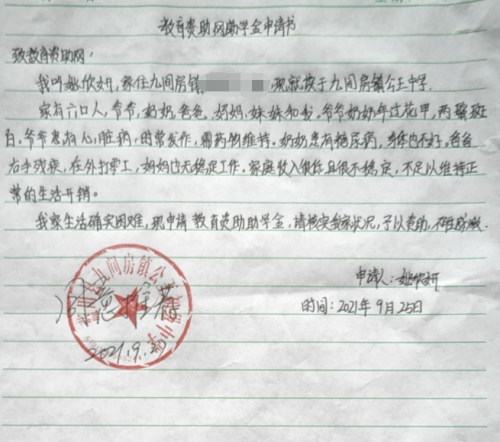 教育资助网助学金申请书
致教育资助网:
我叫姚欣妍,家住九间房镇 ,现就读于九间房镇公王中学.
家有六口人,爷爷,奶奶,爸爸,妈妈,妹妹和我。爷爷奶奶年过花甲,两鬓斑
白。爷爷患有心脏病,时常发作,需药物维持。奶奶患有糖尿病,身体也不好。爸爸
右手残疾,在外打零工,妈妈也无稳定工作。家庭收入很低且很不稳定,不足以维持正
常的生活开销。
我家生活确实困难,现申请教育资助助学金,请核实我家状况,予以资助,不胜感激.
申请人:姚欣妍
时间:2021年9月25日
九间房镇公王
2021.9.